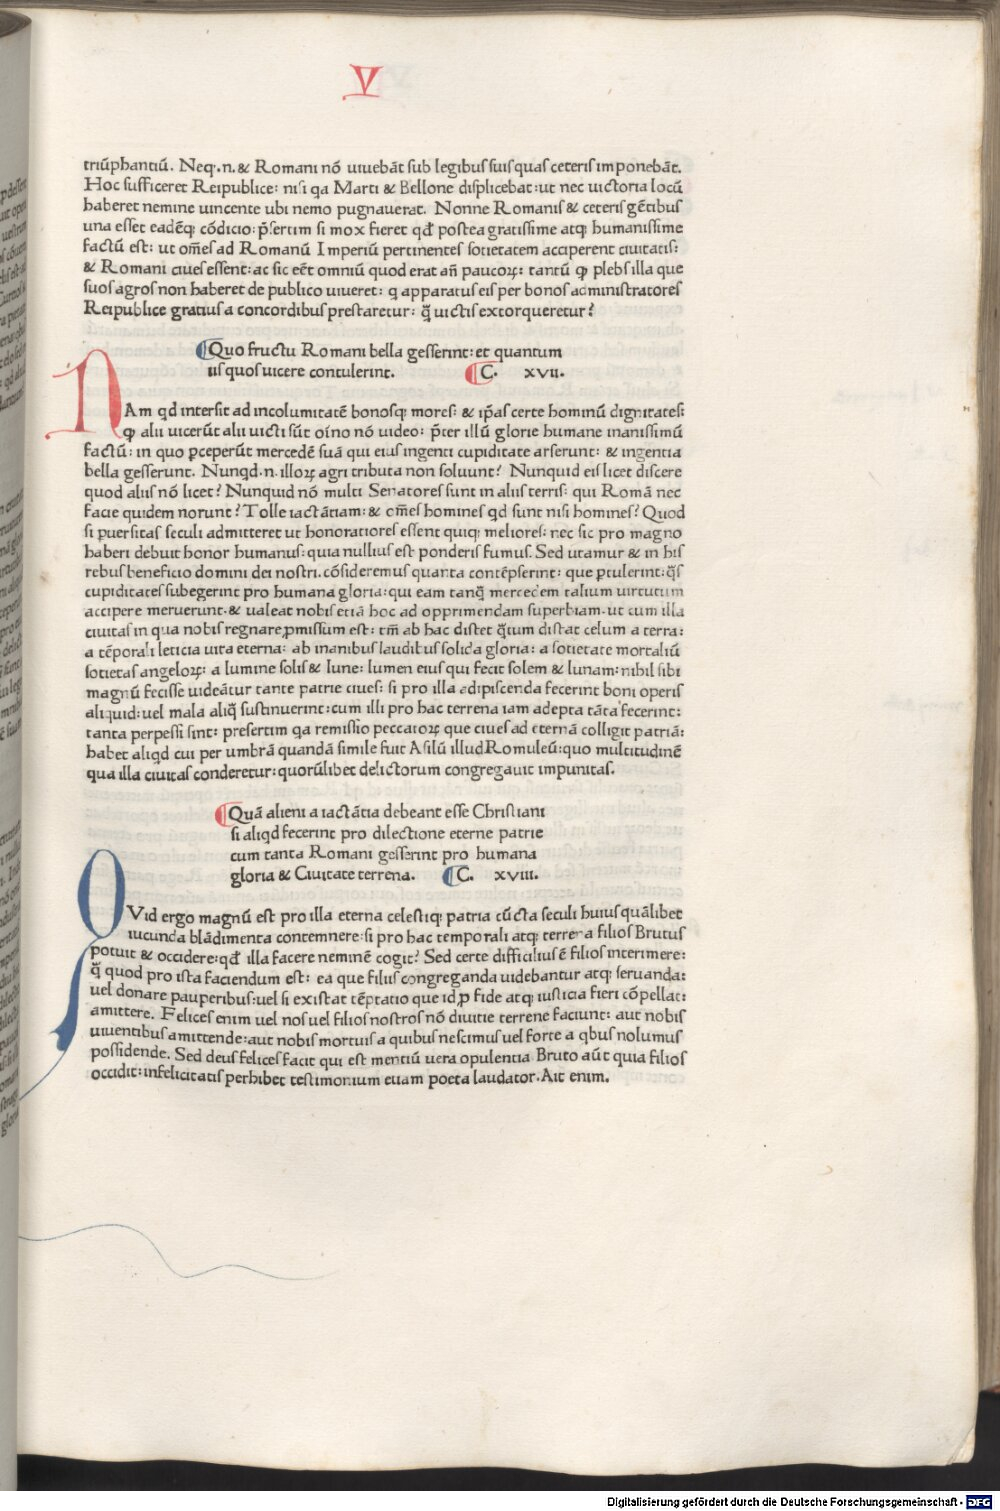 V
triũphantiũ. Neq;.n.& Romani nõ uiuebãt sub legibus suis quas ceteris imponebãt.
Hoc sufficeret Reipublice: nisi qa Marti & Bellone displicebat: ut nec uictoria locũ
haberet nemine uincente ubi nemo pugnauerat. Nonne Romanis & ceteris gẽtibus
una esset eadẽq; cõdicio: p̃sertim si mox fieret qđ postea gratissime atq; humanissime
factũ est: ut om̃es ad Romanũ Imperiũ pertinentes societatem acciperent ciuitatis:
& Romani ciues essent: ac sic eẽt omniũ quod erat añ paucoꝝ: tantũ ꝙ plebs illa que
suos agros non haberet de publico uiueret: q apparatus eis per bonos administratores
Reipublice gratius a concordibus prestaretur: q̃ uictis extorqueretur?
Quo fructu Romani bella gesserint: et quantum
iis quos uicere contulerint. C. xvii.
NAm qd intersit ad incolumitatẽ bonosq; mores: & ip̃as certe hominũ dignitates:
ꝙ alii uicerũt alii uicti sũt oĩno nõ uideo: p̃ter illũ glorie humane inanissimũ
factũ: in quo ꝑceperũt mercedẽ suã qui eius ingenti cupiditate arserunt: & ingentia
bella gesserunt. Nunqd.n.illoꝝ agri tributa non soluunt? Nunquid eis licet discere
quod aliis nõ licet? Nunquid nõ multi Senatores sunt in aliis terris: qui Romã nec
facie quidem norunt? Tolle iactãtiam: & om̃es homines qd sunt nisi homines? Quod
si ꝑuersitas seculi admitteret ut honoratiores essent quiq; meliores: nec sic pro magno
haberi debuit honor humanus: quia nullius est ponderis fumus. Sed utamur & in his
rebus beneficio domini dei nostri. cõsideremus quanta contẽpserint: que ꝑtulerint: q̃s
cupiditates subegerint pro humana gloria: qui eam tanq̃ mercedem talium uirtutum
accipere meruerunt. & ualeat nobis etiã hoc ad opprimendam superbiam. ut cum illa
ciuitas in qua nobis regnare ꝓmissum est: tm̃ ab hac distet q̃tum distat celum a terra:
a tẽporali leticia uita eterna: ab inanibus laudibus solida gloria: a societate mortaliũ
societas angeloꝝ: a lumine solis & lune: lumen eius qui fecit solem & lunam: nihil sibi
magnũ fecisse uideãtur tante patrie ciues: si pro illa adipiscenda fecerint boni operis
aliquid: uel mala aliq̃ sustinuerint: cum illi pro hac terrena iam adepta tãta fecerint:
tanta perpessi sint: presertim qa remissio peccatoꝝ que ciues ad eternã colligit patriã:
habet aliqd cui per umbrã quandã simile fuit Asilũ illud Romuleũ: quo multitudinẽ
qua illa ciuitas conderetur: quorũlibet delictorum congregauit impunitas.
Quã alieni a iactãtia debeant esse Christiani
si aliqd fecerint pro dilectione eterne patrie
cum tanta Romani gesserint pro humana
gloria & Ciuitate terrena. C. xviii.
QVid ergo magnũ est pro illa eterna celestiq; patria cũcta seculi huius quãlibet
iucunda blãdimenta contemnere: si pro hac temporali atq; terrena filios Brutus
potuit & occidere: qđ illa facere neminẽ cogit? Sed certe difficilius ẽ filios interimere:
q̃ quod pro ista faciendum est: ea que filiis congreganda uidebantur atq; seruanda:
uel donare pauperibus: uel si existat tẽptatio que id ꝓ fide atq; iusticia fieri cõpellat:
amittere. Felices enim uel nos uel filios nostros nõ diuitie terrene faciunt: aut nobis
uiuentibus amittende: aut nobis mortuis a quibus nescimus uel forte a qbus nolumus
possidende. Sed deus felices facit qui est mentiũ uera opulentia Bruto aũt quia filios
occidit: infelicitatis perhibet testimonium etiam poeta laudator. Ait enim.
Digitalisierung gefördert durch die Deutsche Forschungsgemeinschaft - DFG